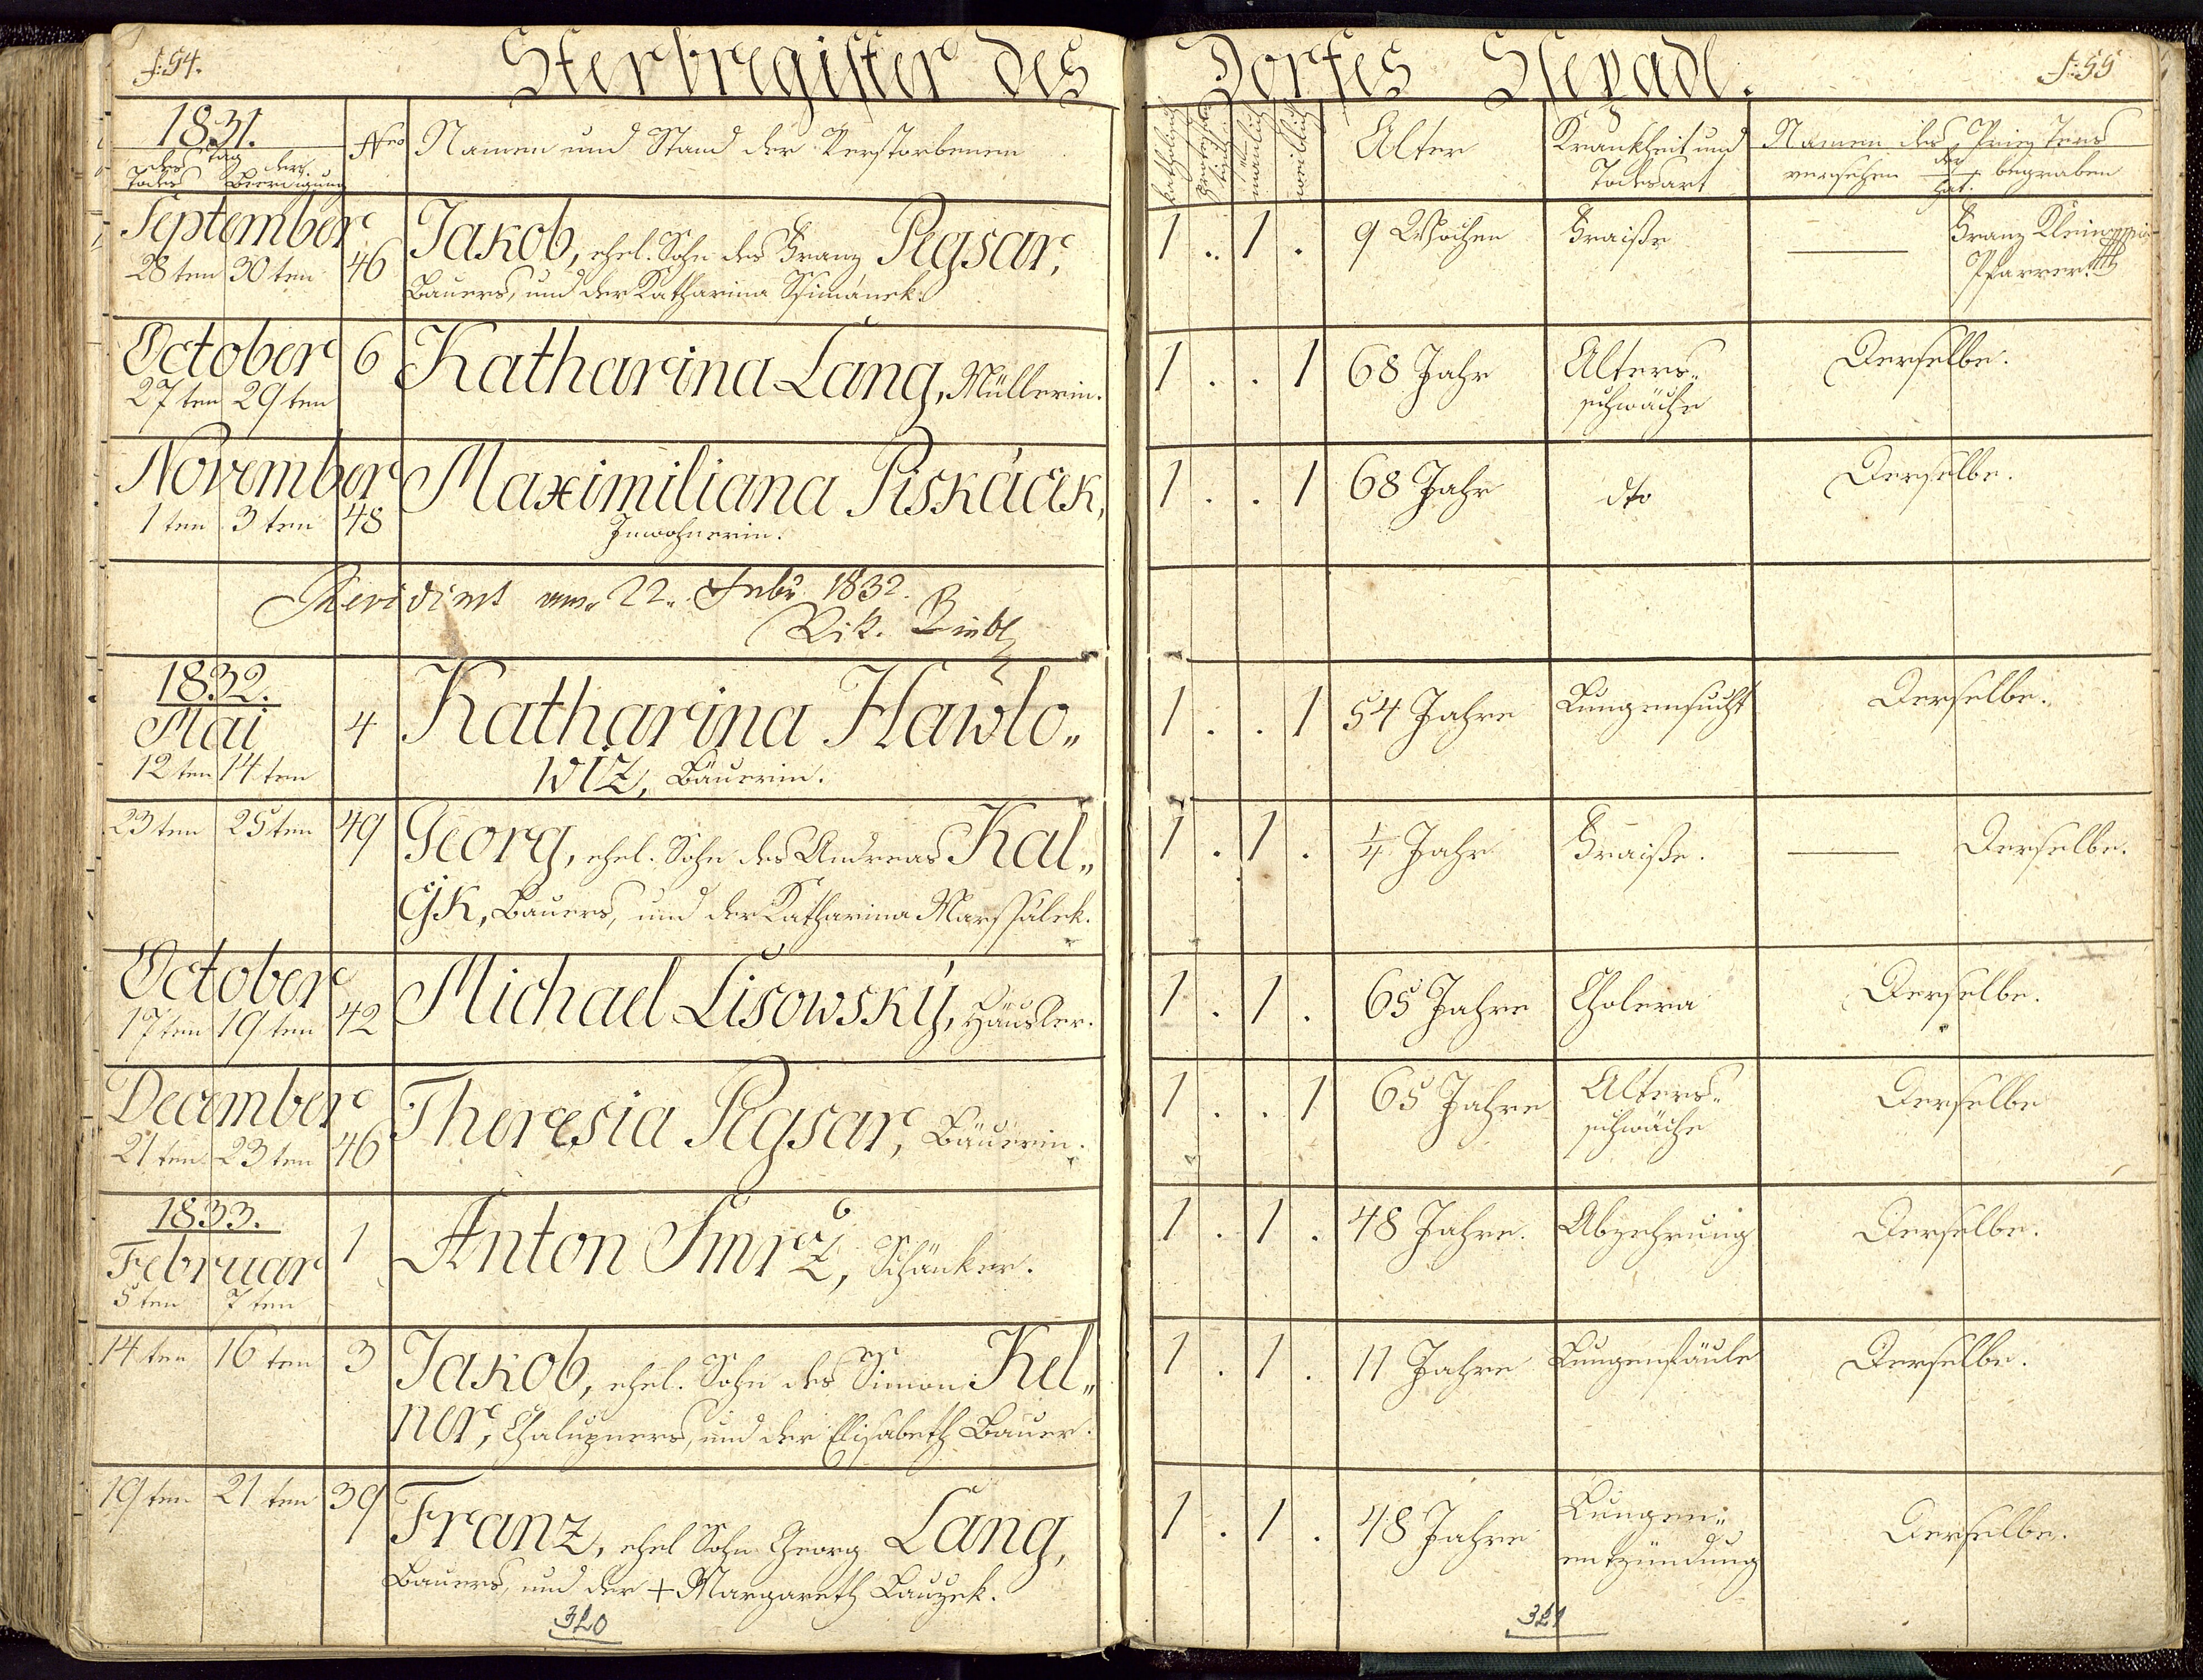 f: 54.
Sterbregister des Dorfes Slepadl.
f: 55
1831.
Tag
des Todes
der Beerdigung
Nro
Namen und Stand der Verstorbenen
katholisch
männlich
weiblich
Alter
Krankheit und
Todesart
Namen des Priesters
versehen der hat. begraben
September
28ten 30ten 46
Jakob, ehel. Sohn des Franz Pegsar,
Bauers, und der Katharina Ssimánek.
1 . 1 . 9 Wochen Fraiße — Franz
Pfarrer
October
27ten 29ten 6
Katharina Lang, Müllerin.
1 . . 1 68 Jahr Alters-
schwäche
Derselbe.
November
1ten 3ten 48
Maximiliana Piskáček,
Inwohnerin.
1 . . 1 68 Jahr dto Derselbe.
Revidirt am 22. Febr. 1832.
Vik.
1832.
Mai
12ten 14ten 4
Katharina Hawlo-
wiz, Bäuerin.
1 . . 1 54 Jahre Lungensucht Derselbe.
23ten 25ten 49
Georg, ehel. Sohn des Andreas Kal-
Bauers, und der Katharina Marssálek.
1 . 1 . ¼ Jahr Fraiße. — Derselbe.
October
17ten 19ten 42
Michael Lisowský, Häusler.
1 . 1 . 65 Jahre Cholera Derselbe.
December
21ten 23ten 46
Theresia Pegsar, Bäuerin.
1 . . 1 65 Jahre Alters-
schwäche
Derselbe
1833.
Februar
5ten 7ten 1
Anton Smrž, Schänker.
1 . 1 . 48 Jahre. Abzehrung Derselbe.
14ten 16ten 3
Jakob, ehel. Sohn des Simon Kel-
ner, Chalupners, und der Elisabeth Bauer.
1 . 1 . 11 Jahre Lungenfäule Derselbe.
19ten 21ten 39
Franz, ehel Sohn Georg Lang,
Bauers, und der + Margareth
1 . 1 . 48 Jahre Lungen-
entzündung
Derselbe.
320
321